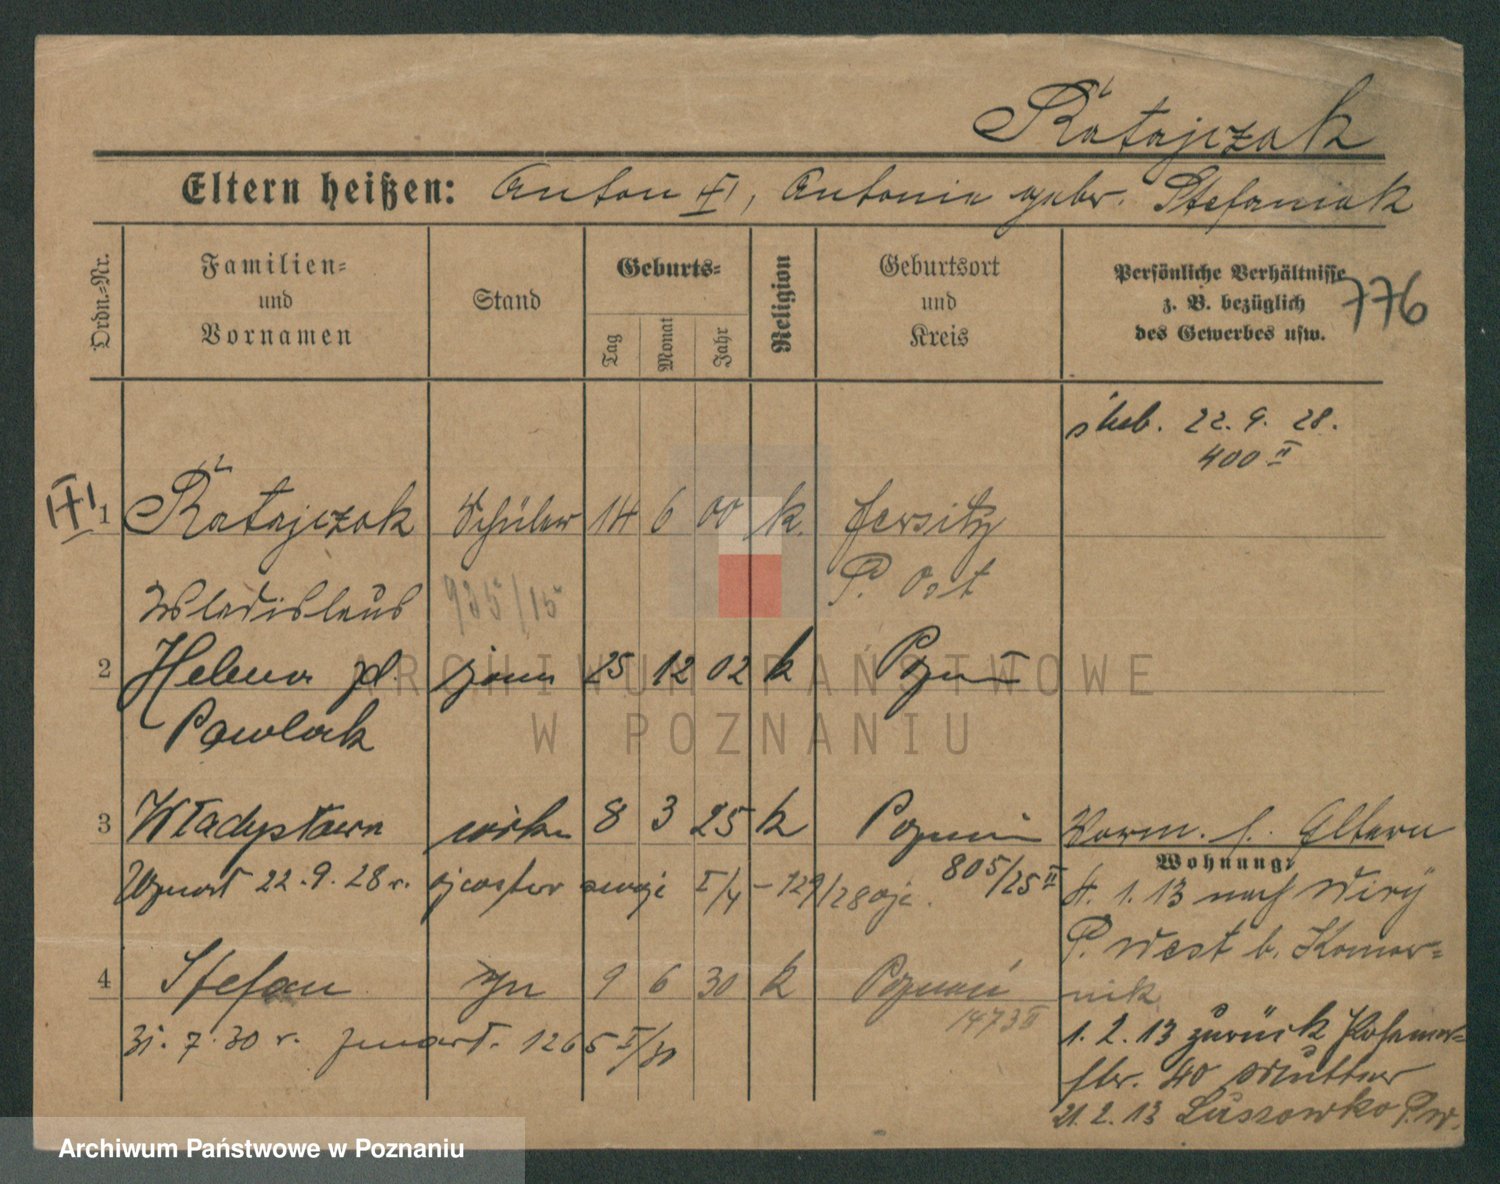 Ratajczak
Eltern heißen: Anton III, Antonie gebr. Stefaniak
Ordn.-Nr.
Familien-
und
Vornamen
Stand
Geburts-
Tag
Monat
Jahr
Religion
Geburtsort
und
Kreis
Persönliche Verhältnisse
z. B. bezüglich
des Gewerbes usw.
776
ślub. 22. 9. 28.
400 II
III
1 Ratajczak Schüler 14 6 00 k. Jersitz
Wladislaus 935/15 P. Ost
2 Helena zd. żona 25 12 02 k Pozn
Pawlak
3 Władysława córka 8 3 25 k Poznań Vorm. s. Eltern
805/25 II
Wohnung:
22.9.28 r. I/4 – 129/28
4. 1. 13 nach Wiry
P. West b. Komor-
nik
4 Stefan syn 9 6 30 k Poznań
1473 II
31. 7. 30 r. zmarł. 1265 I/30
1. 2. 13 zurück
str. 40 Mutter
21. 2. 13 Lussowko P.W.
ARCHIWUM PAŃSTWOWE
W POZNANIU
Archiwum Państwowe w Poznaniu